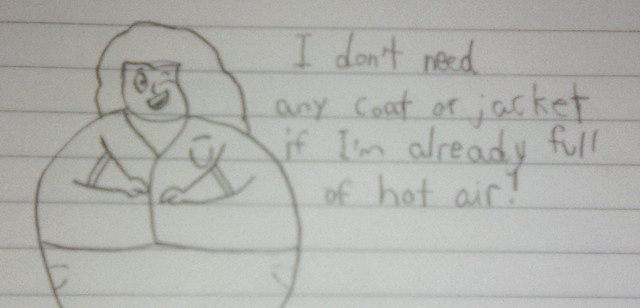 I don't need
any coat or jacket
if I'm already full
of hot air!